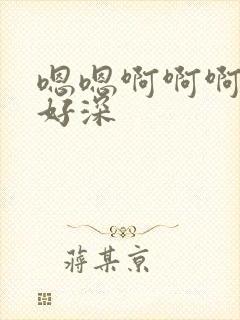 嗯嗯啊啊啊
好深
蒋某京